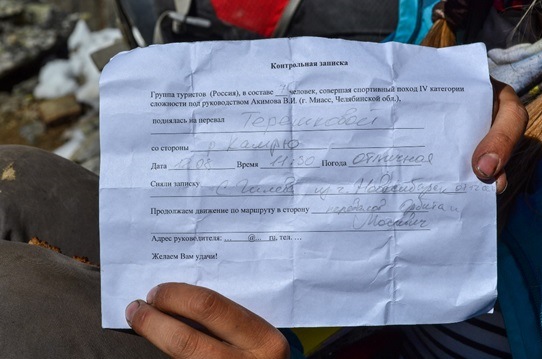 Контрольная записка
Группа туристов (Россия), в составе 7 человек, совершая спортивный поход IV категории
сложности под руководством Акимова В.И. (г. Миасс, Челябинской обл.),
поднялась на перевал Терешковой
со стороны р Камрю
Дата 08 Время 11:30 Погода отличная
Сняли записку г. Новосибирск
Продолжаем движение по маршруту в сторону перевалов Орбита и
Москвич
Адрес руководителя: … @… ru, тел. …
Желаем Вам удачи!